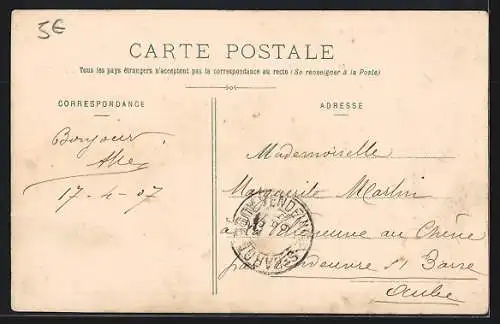 5€
CARTE POSTALE
Tous les pays étrangers n'acceptent pas la correspondance au recto (Se renseigner à la Poste)
CORRESPONDANCE
ADRESSE
Bonjour
17-4-07
Mademoiselle
Marguerite Martin
à Villeneuve au Chêne
par Vendeuvre s/ Barse
Aube